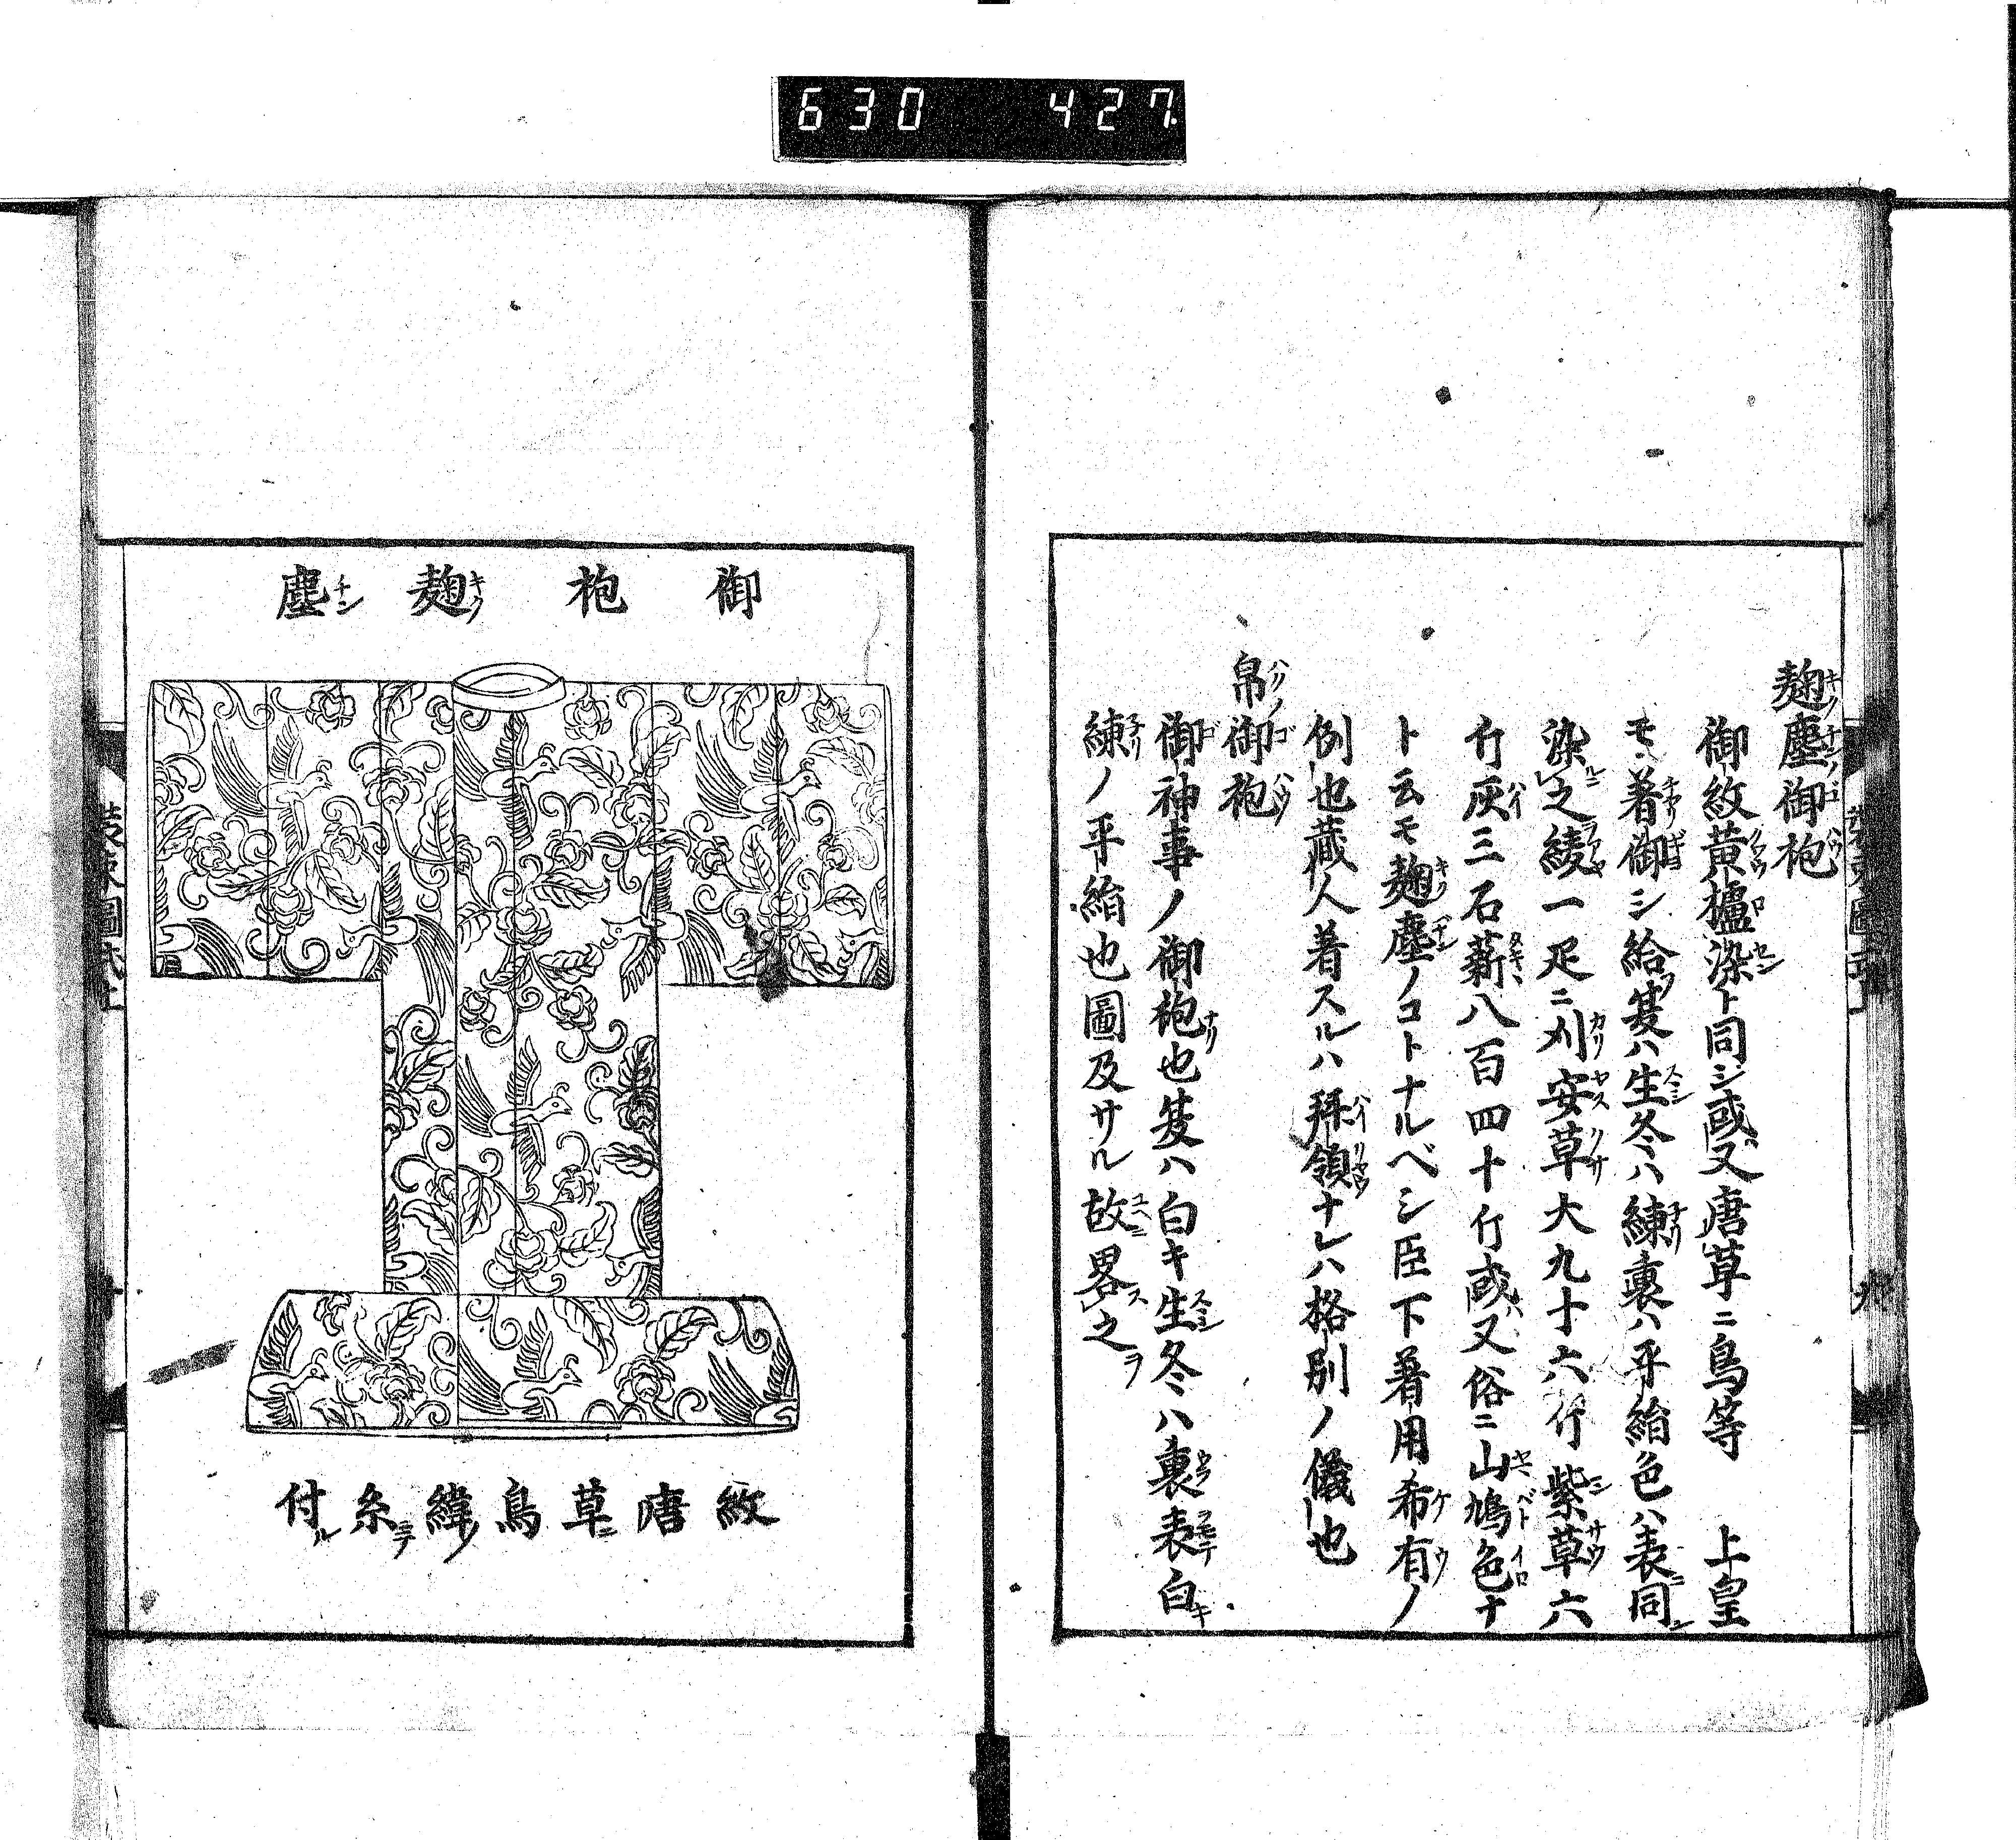 630 427
麹塵御袍
御紋黄櫨染ト同シ或又唐草ニ鳥等 上皇
モ著御シ給フ夏ハ生冬ハ練裏ハ平絹色ハ表同シ
染之綾一疋ニ刈安草大九十六斤紫草六
斤灰三石薪八百四十斤或又俗ニ山鳩色ナ
ト云モ麹塵ノコトナルベシ臣下著用希有ノ
例也蔵人着スルハ拜領ナレハ格別ノ儀也
帛御袍
御神事ノ御袍也夏ハ白キ生冬ハ裏表白キ
練ノ平絹也圖及サル故畧之
御袍麹塵
紋唐草ニ鳥緯糸ニテ付ル